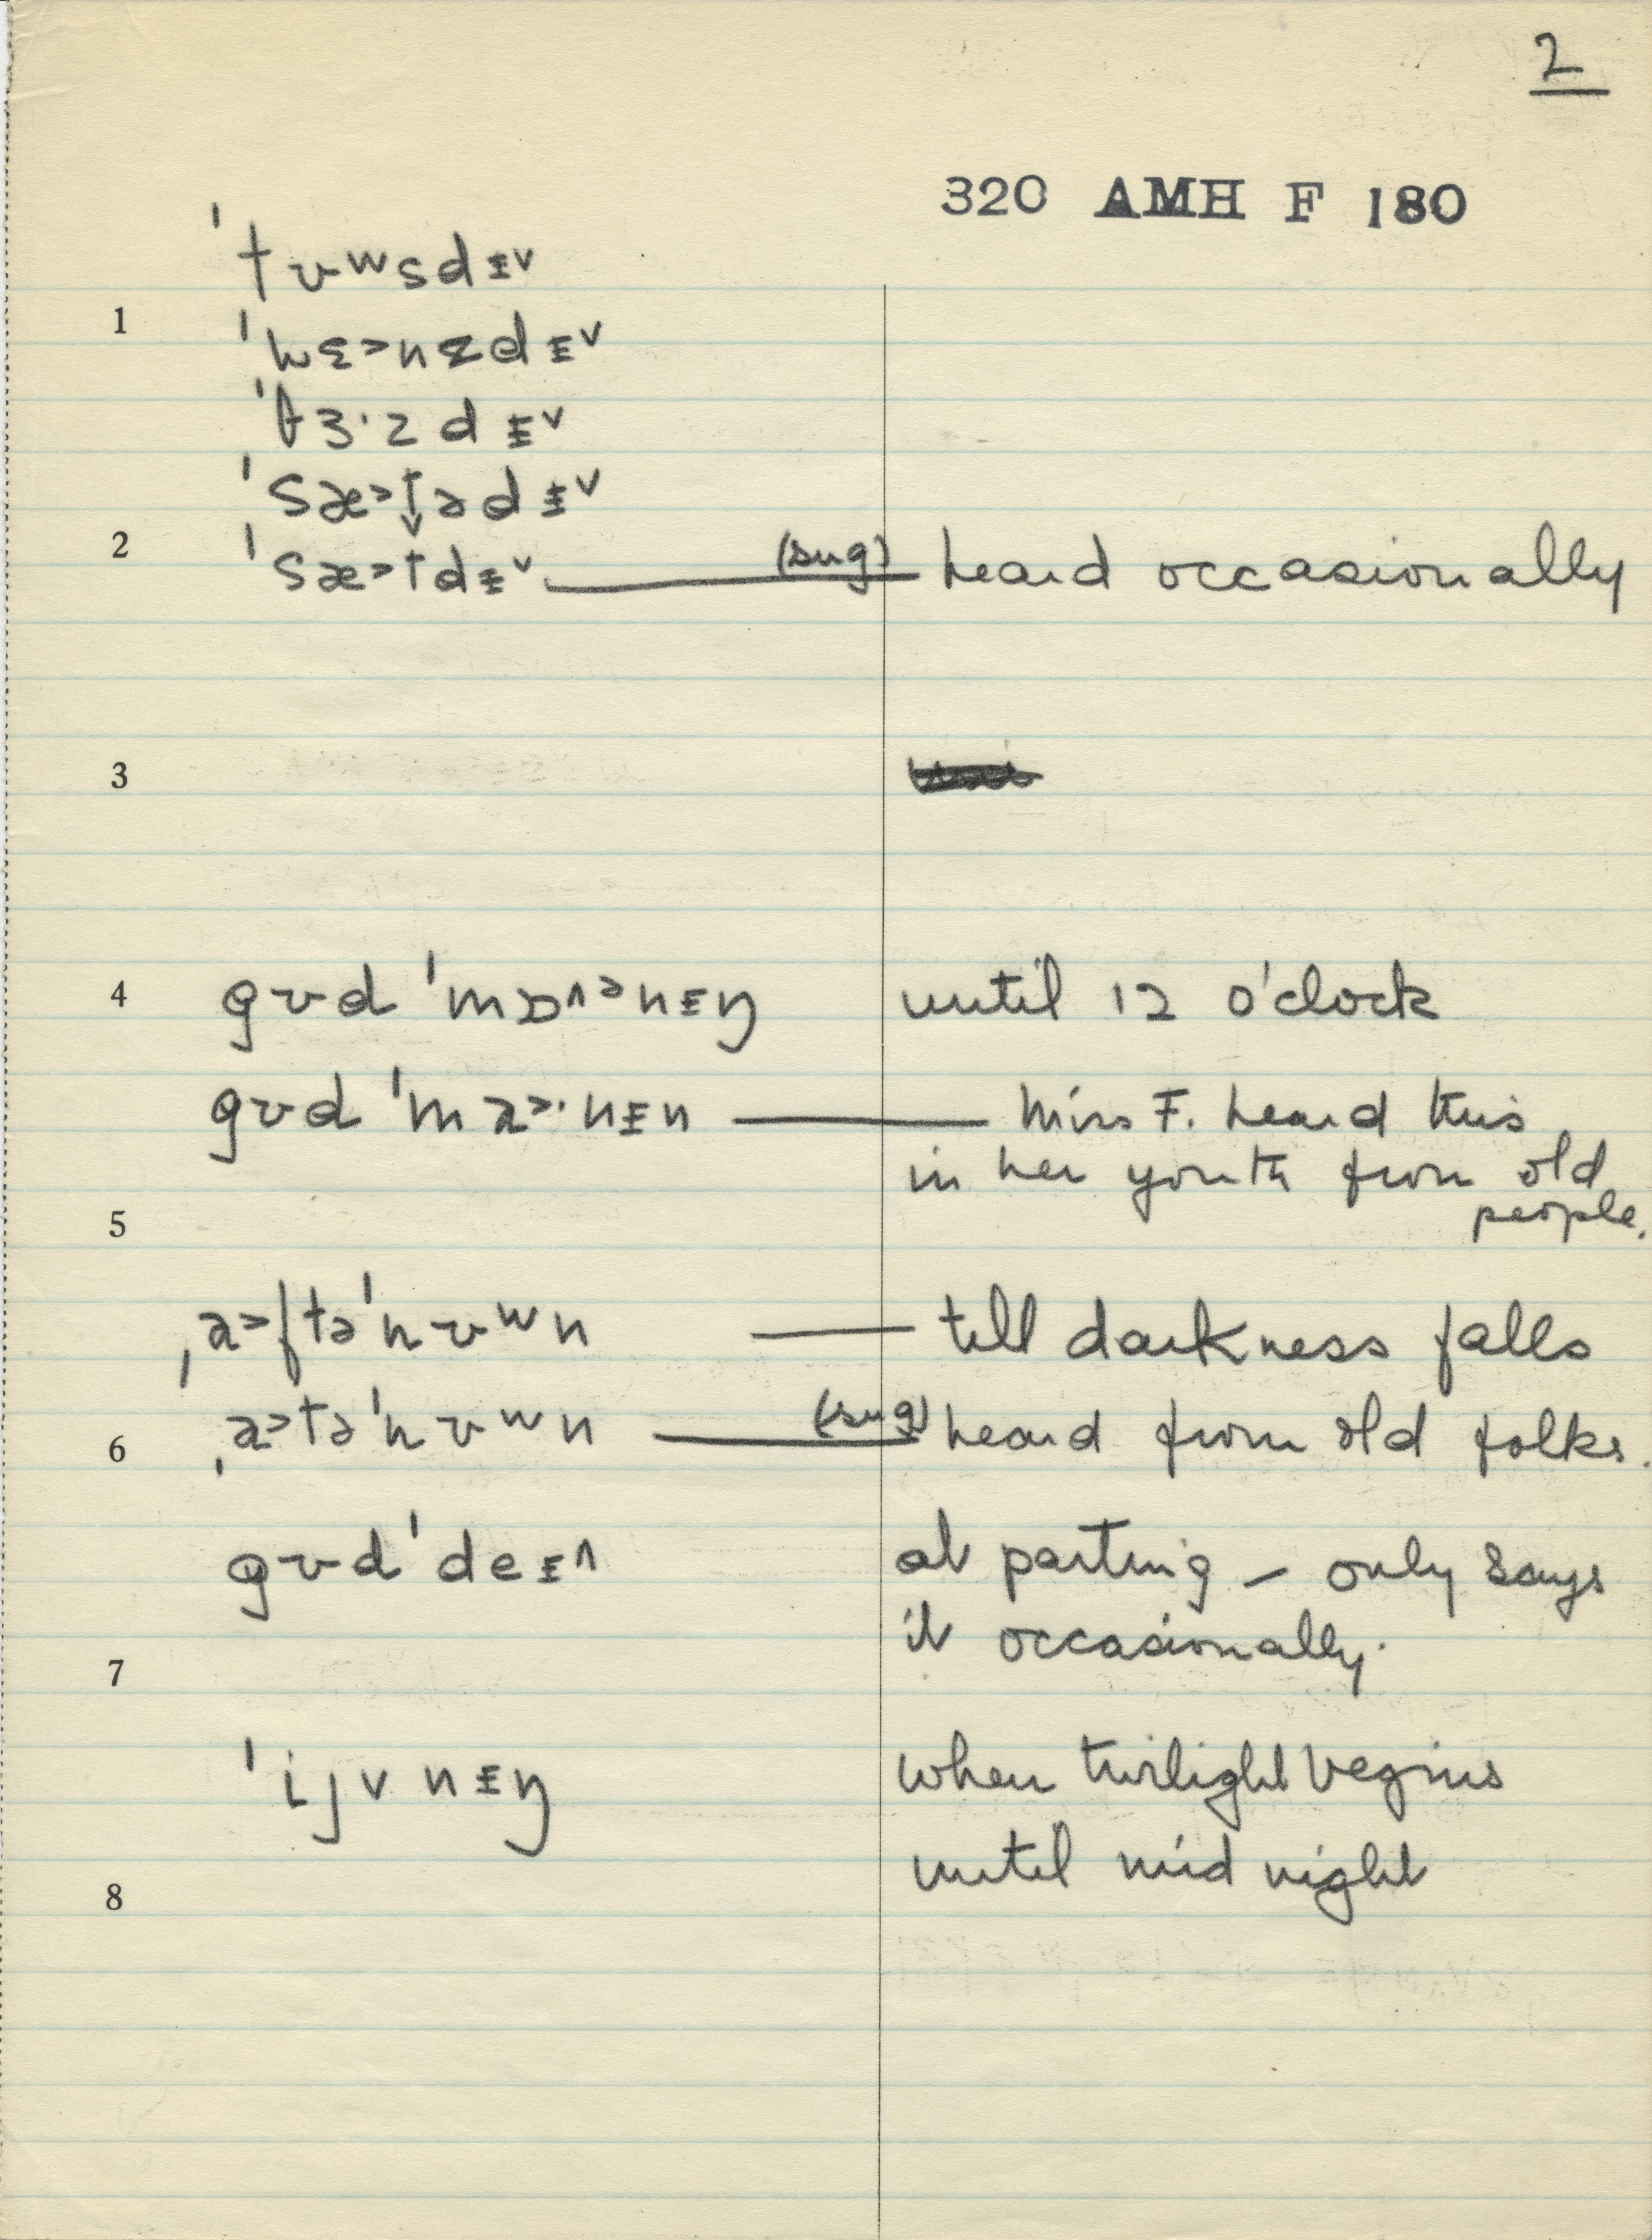 2
320 AMH F 180
ˈtʊʷsdɨ˅
1
ˈwɛ˃nzdɨ˅
ˈθɜ·zdɨ˅
ˈsæ˃t̬ədɨ˅
2 ˈsæ˃tdɨ˅ — (sug) heard occasionally
3
4 gʊd ˈmɒ˄ᵊnɨŋ until 12 o'clock
gʊd ˈma˃·nɨn — Miss F. heard this
in her youth from old
people.
5
ˌa˃ftəˈnʊʷn — till darkness falls
6 ˌa˃təˈnʊʷn — (sug) heard from old folks.
gʊdˈdeɨ˄ at parting – only says
it occasionally.
7
ˈijvnɨŋ when twilight begins
until mid night
8